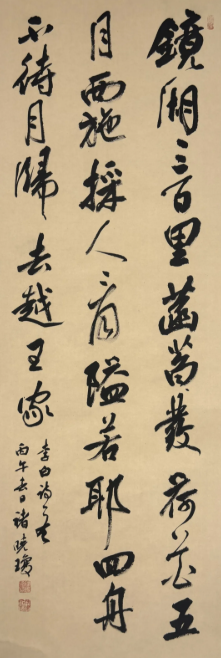 鏡湖三百里菡萏發荷花五
月西施採人看隘若耶回舟
不待月歸去越王家
李白詩
丙午春日褚曉瓊